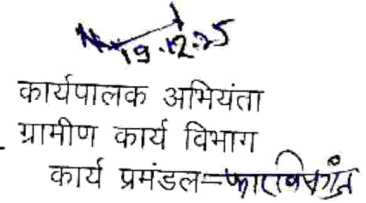 19.12.25
कार्यपालक अभियंता
ग्रामीण कार्य विभाग
कार्य प्रमंडल-फारबिसगंज